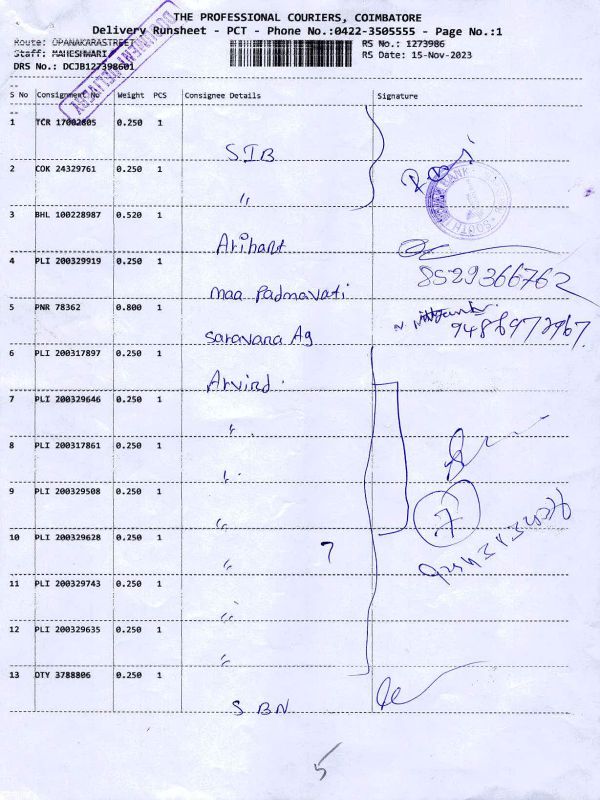 THE PROFESSIONAL COURIERS, COIMBATORE
Delivery Runsheet - PCT - Phone No.:0422-3505555 - Page No.:1
Route: OPANAKARASTREET
RS No.: 1273986
Staff: MAHESHWARI
RS Date: 15-Nov-2023
DRS No.: DCJB127398601
DOCUMENT DELIVERY
S No Consignment No Weight PCS Consignee Details Signature
1 TCR 17002805 0.250 1
SIB
2 COK 24329761 0.250 1
〃
Ravi
BANK
SOUTH
3 BHL 100228987 0.520 1
Arihant
4 PLI 200329919 0.250 1
maa Padmavati
8529366762
5 PNR 78362 0.800 1
Saravana Ag
9486972967
6 PLI 200317897 0.250 1
Arvind
7 PLI 200329646 0.250 1
〃
8 PLI 200317861 0.250 1
〃
9 PLI 200329508 0.250 1
〃
7
10 PLI 200329628 0.250 1
〃
7
11 PLI 200329743 0.250 1
〃
12 PLI 200329635 0.250 1
〃
13 OTY 3788806 0.250 1
S BN
5